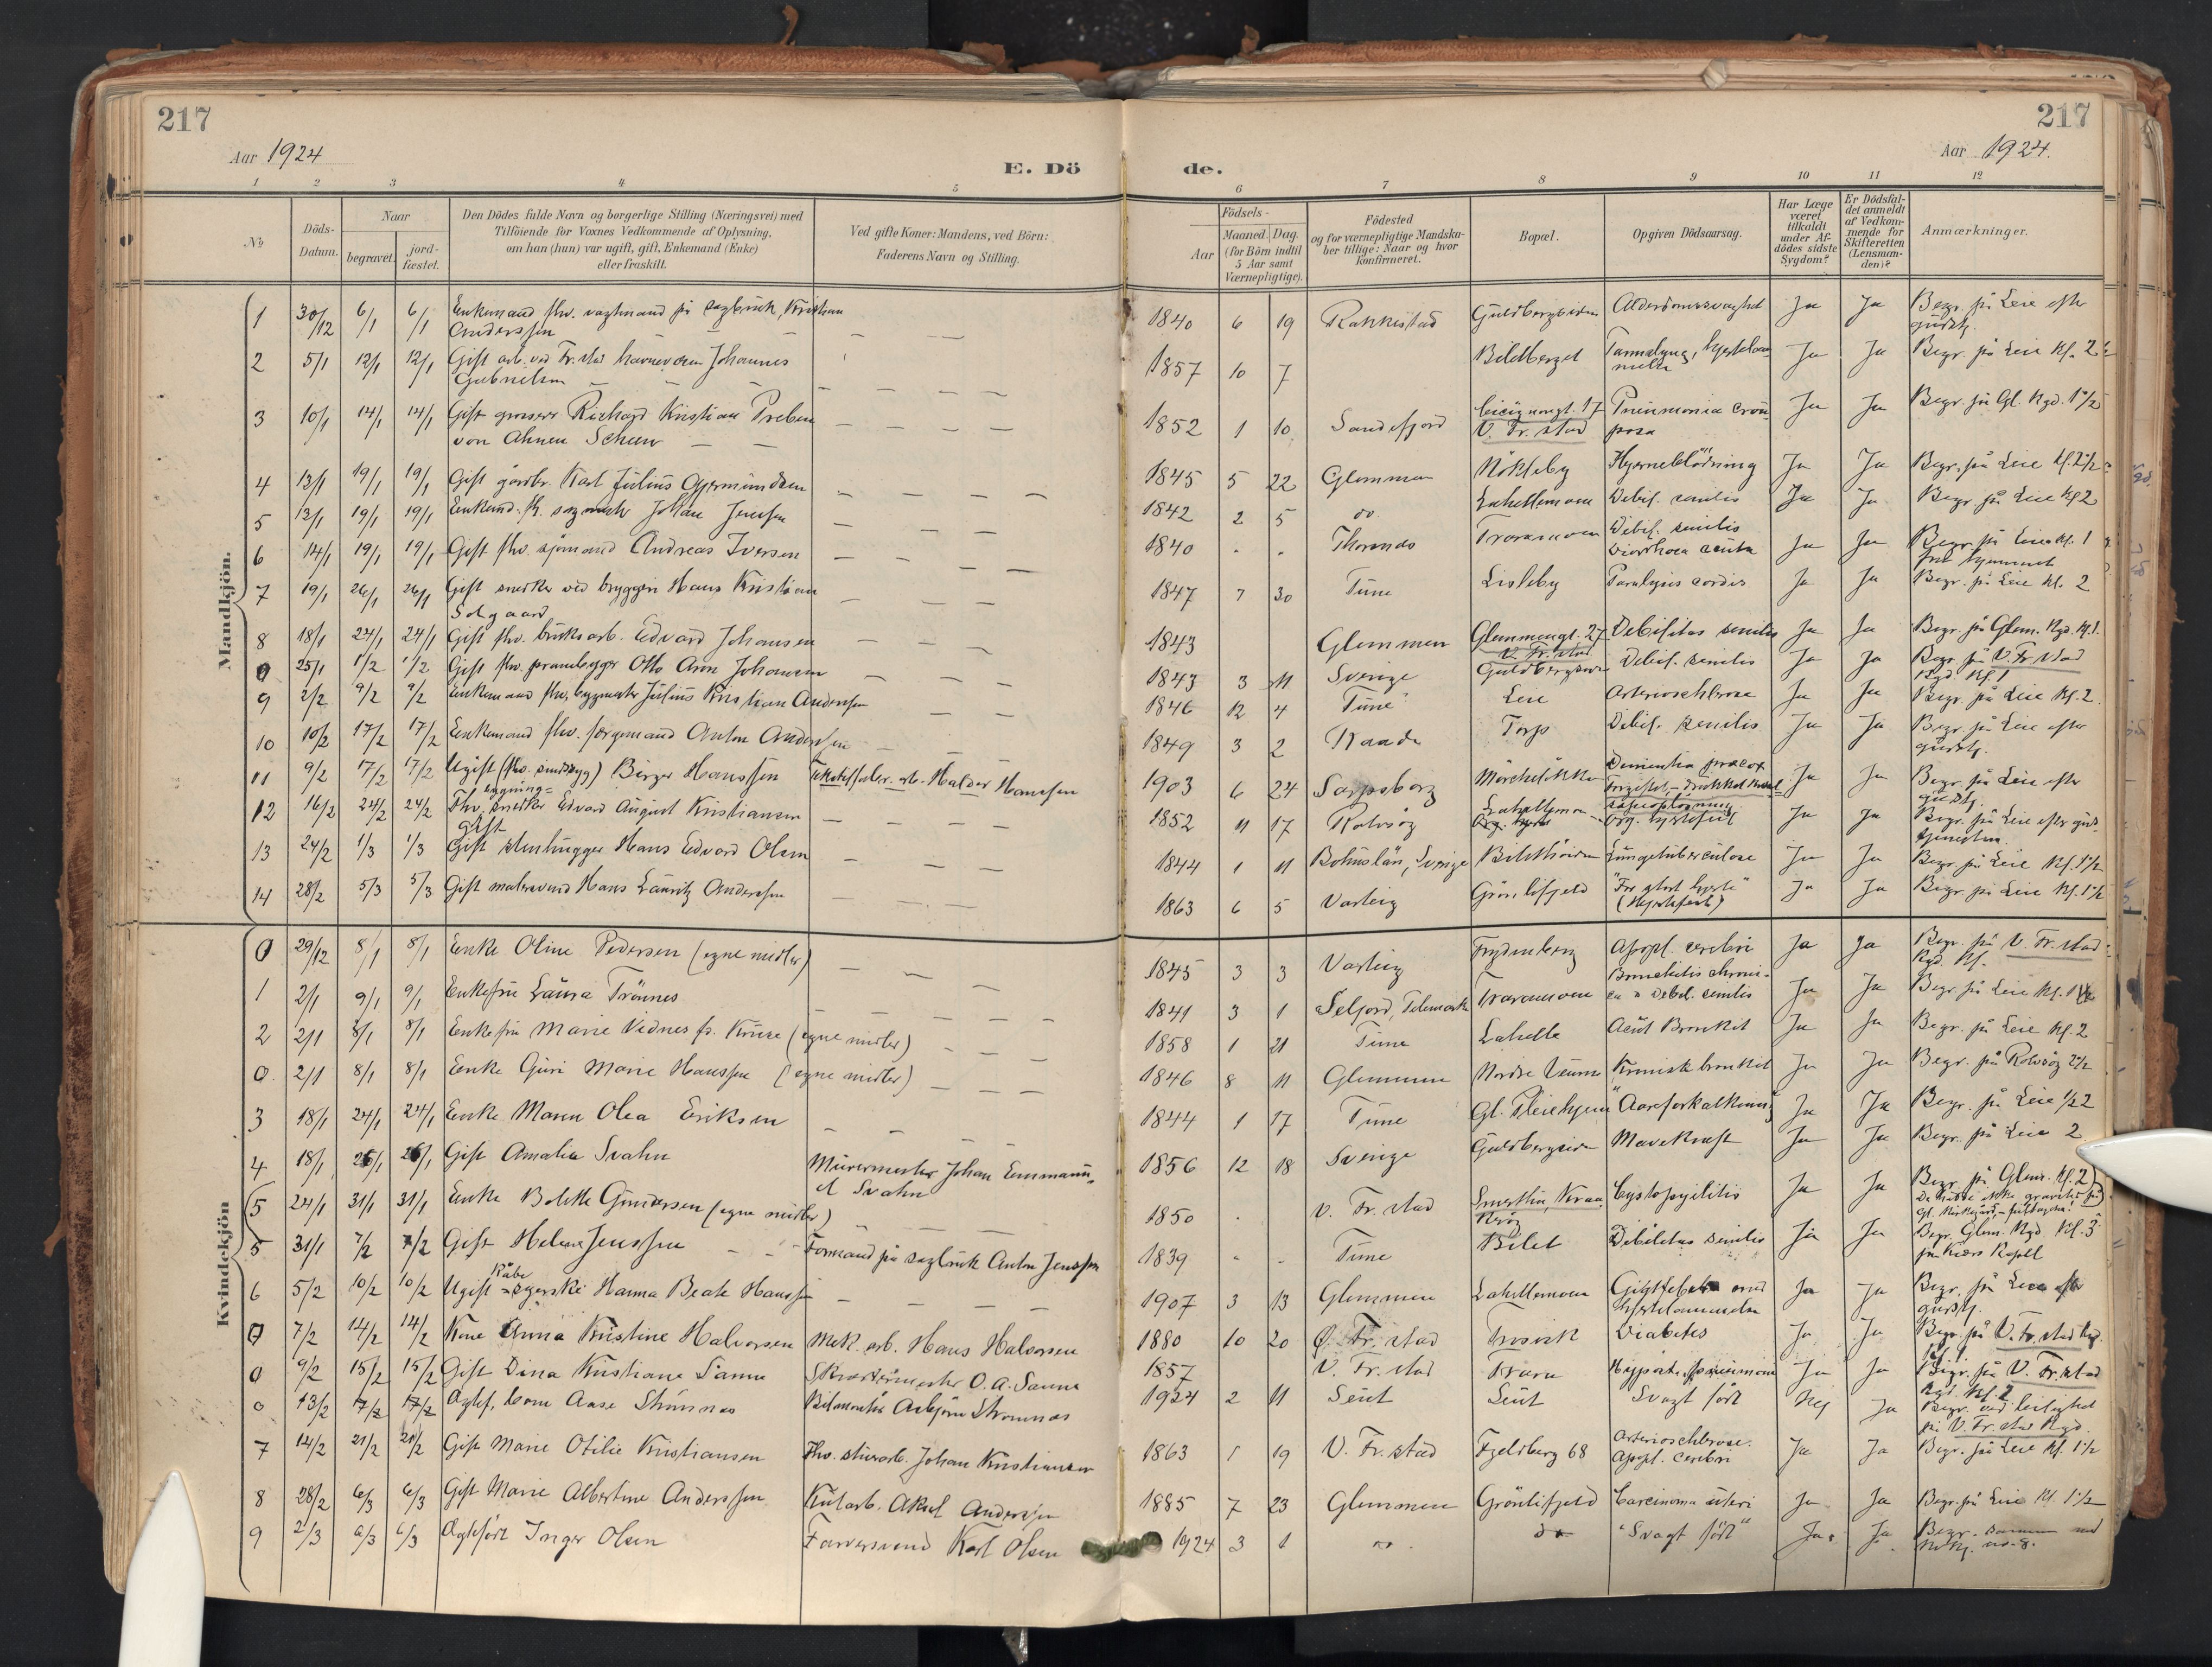 217
217
Aar 1924
Aar 1924.
E. Dö
de.
1 2 3 4 5 6 7 8 9 10 11 12
No
Döds-
Datum.
Naar
begravet.
jord-
fæstet.
Den Dödes fulde Navn og borgerlige Stilling (Næringsvei) med
Tilföiende for Voxnes Vedkommende af Oplysning,
om han (hun) var ugift, gift, Enkemand (Enke)
eller fraskilt.
Ved gifte Koner: Mandens, ved Börn:
Faderens Navn og Stilling.
Födsels-
Aar
Maaned. Dag.
(for Börn indtil
5 Aar samt
Værnepligtige).
Födested
og for værnepligtige Mandska-
ber tillige: Naar og hvor
konfirmeret.
Bopæl.
Opgiven Dödsaarsag.
Har Læge
været
tilkaldt
under Af-
dödes sidste
Sygdom?
Er Dödsfal-
det anmeldt
af Vedkom-
mende for
Skifteretten
(Lensman-
den)?
Anmærkninger.
Mandkjön.
1 30/12 6/1 6/1 Enkemand fhv. vagtmand på sagbruk, Kristian
Anderssen
1840 6 19 Rakkestad Guldbergsiden Alderdomssvaghet Ja Ja Begr. på Leie efter
gudstj.
2 5/1 12/1 12/1 Gift arb. ved Fr.stad havnevæsen Johannes
Gabrielsen
1857 10 7 Bildtberget Ja Ja Begr. på Leie Kl. 2
3 10/1 14/1 14/1 Gift grosserer Richard Kristian Preben
von Ahnen Scheen
1852 1 10 Sandefjord Cicignongt. 17
V. Fr.stad Pneumonia crou
posa Ja Ja Begr. på Gl. Kgd. 1 1/2
4 13/1 19/1 19/1 Gift gårdbr. Karl Julius Gjermundsen
1845 5 22 Glemmen Nökleby Hjerneblödning Ja Ja Begr. på Leie Kl. 2 1/2
5 13/1 19/1 19/1 Enkemd. fh. sagmester Johan Jensen
1842 2 5 do. Lahellemoen Debil. senilis Ja Ja Begr. på Leie Kl 2
6 14/1 19/1 19/1 Gift fhv. sjömand Andreas Iversen
1840 - - Thorsnes Traramoen Debil. senilis
Diarrhoea acuta Ja Ja Begr. på Leie Kl. 1
fra hjemmet
7 19/1 26/1 26/1 Gift snedker ved bryggeri Hans Kristian
Solgaard
1847 7 30 Tune Lisleby Paralysis cordis Ja Ja Begr. på Leie Kl. 2
8 18/1 24/1 24/1 Gift fhv. bruksarb. Edvard Johansen
1843 Glemmen Glemmengt. 27
V. Fr.stad Debilitas senilis Ja Ja Begr. på Glem. Kgd. Kl. 1.
0 25/1 1/2 1/2 Gift fhv. prambygger Otto Aron Johansen
1843 3 11 Sverige Guldbergsiden Debil. senilis Ja Ja Begr. på V. Fr.stad
Kgd. Kl. 1
9 2/2 9/2 9/2 Enkemand fhv. bygmester Julius Kristian Andersen
1846 12 4 Tune Leie Arteriosclerose Ja Ja Begr. på Leie Kl. 2
10 10/2 17/2 17/2 Enkemand fhv. færgemand Anton Andersen
1849 3 2 Raade Torp Debil. senilis Ja Ja Begr. på Leie efter
gudstj.
11 9/2 17/2 17/2 Ugift (fhv. sindssyg) Birger Hanssen Tekstilfabr. arb. Haldor Hanssen
1903 6 24 Sarpsborg Mörkeløkka Dementia præcox
Ja Ja Begr. på Leie efter
gudstj.
12 16/2 24/2 24/2 Fhv. bygningssnedker Edvard August Kristiansen
gift
1852 11 17 Rolvsøy Lahellemoen Org. hjertefeil Ja Ja Begr. på Leie efter guds-
tjenesten.
13 24/2 1/3 1/3 Gift stenhugger Hans Edvard Olsen
1844 1 11 Bohuslän, Sverige Bildthöiden Lungetuberculose Ja Ja Begr. på Leie Kl. 1 1/2
14 28/2 5/3 5/3 Gift malersvend Hans Lauritz Anderssen
1863 6 5 Varteig Grönlifjeld "For stort hjerte"
(Hjertefeil) Ja Ja Begr. på Leie Kl. 1 1/2
Kvindekjön
0 29/12 8/1 8/1 Enke Oline Pedersen (egne midler)
1845 3 3 Varteig Frydenberg Apopl. cerebri Ja Ja Begr. på V. Fr.stad
Kgd. Kl.
1 2/1 9/1 9/1 Enkefru Laura Trönnes
1841 3 1 Seljord, Telemark Traramoen Bronchitis chroni-
ca Debil. senilis Ja Ja Begr. på Leie Kl. 1
2 2/1 8/1 8/1 Enkefru Marie Vidnes f. Kruse (egne midler)
1858 1 21 Tune Lahelle Acut Bronkit Ja Ja Begr. på Leie Kl. 2
0. 2/1 8/1 8/1 Enke Guri Marie Hanssen (egne midler)
1846 8 11 Glemmen Nordre Veum Kronisk bronkit Ja Ja Begr. på Rolvsöy 2 1/2
3 18/1 24/1 24/1 Enke Maren Olea Eriksen
1844 1 17 Tune Gl. Pleiehjem Aareforkalkning Ja Ja Begr. på Leie 1/2 2
4 18/1 25/1 25/1 Gift Amalia Svahn Murermester Johan Emmanu-
el Svahn
1856 12 18 Sverige Guldbergsiden Mavekræft Ja Ja Begr. på Leie 2
(5 24/1 31/1 31/1 Enke Bolette Gundersen (egne midler)
1850 - V. Fr.stad Smertulia, Kraa
kerøy Cystopyelitis Ja Ja Begr. på Glem. Kl. 2)
De hadde ikke gravsted på
gl. Kirkegård,
5 31/1 7/2 7/2 Gift Helene Jenssen Formand på sagbruk Anton Jenssen
1839 - - Tune Bilet Debilitas senilis Ja Ja Begr. Glem. Kgd. Kl. 3
fra Kiærs Kapell
6 5/2 10/2 10/2 Ugift kåbesyerske Hanna Beate Hanssen
1907 3 13 Glemmen Lahellemoen Gigtfeber med
Ja Ja Begr. på Leie efter
gudstj.
0 7/2 14/2 14/2 Kone Anna Kristine Halvorsen Mek. arb. Hans Halvorsen
1880 10 20 Ø. Fr.stad Trosvik Diabetes Ja Ja Begr. på V. Fr.stad kgd.
Kl. 1
0 9/2 15/2 15/2 Gift Dina Kristiane Sanne Skræddermester O. A. Sanne
1857 V. Fr.stad Trara Hypost. pneumoni Ja Ja Begr. på V. Fr.stad
Kgd. Kl. 2
0 13/2 17/2 17/2 Ægtef. barn Aase Strömnes Bilmontör Asbjørn Strömnes
1924 2 11 Seut Seut Svagt født Nej Ja Begr. ved leilighet
på V. Fr.stad Kgd.
7 14/2 21/2 21/2 Gift Marie Otilie Kristiansen Fhv. stuerarb. Johan Kristiansen
1863 1 19 V. Fr.stad Fjeldberg 68 Arteriosclerose.
Apopl. cerebri Ja Ja Begr. på Leie Kl. 1 1/2
8 28/2 6/3 6/3 Gift Marie Albertine Anderssen Kularb. Aksel Anderssen
1885 7 23 Glemmen Grönlifjeld Carcinoma uteri Ja Ja Begr. på Leie Kl. 1 1/2
9 2/3 6/3 6/3 Ægtefödt Inger Olsen Farversvend Karl Olsen
1924 3 1 do. do "Svagt född" Ja Ja Begr. sammen med